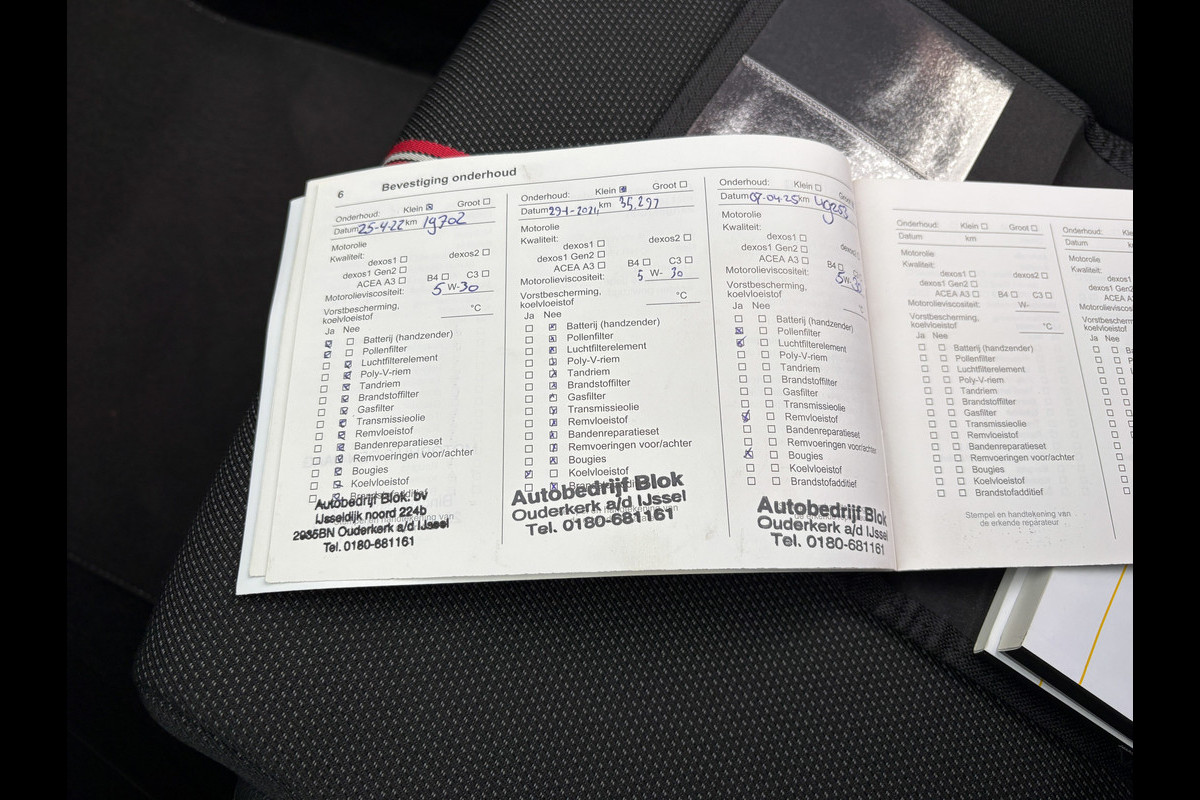 6 Bevestiging onderhoud
Onderhoud: Klein Groot
Datum 25-4-22 km 19702
Motorolie
Kwaliteit:
dexos1 dexos2
dexos1 Gen2
ACEA A3 B4 C3
Motorolieviscositeit: 5 W- 30
Vorstbescherming, °C
koelvloeistof
Ja Nee
Batterij (handzender)
Pollenfilter
Luchtfilterelement
Poly-V-riem
Tandriem
Brandstoffilter
Gasfilter
Transmissieolie
Remvloeistof
Bandenreparatieset
Remvoeringen voor/achter
Bougies
Koelvloeistof
Brandstofadditief
Autobedrijf Blok bv
IJsseldijk noord 224b
2935BN Ouderkerk a/d IJssel
Tel. 0180-681161
Onderhoud: Klein Groot
Datum 29-1-2024 km 35.297
Motorolie
Kwaliteit:
dexos1 dexos2
dexos1 Gen2
ACEA A3 B4 C3
Motorolieviscositeit: 5 W- 30
Vorstbescherming, °C
koelvloeistof
Ja Nee
Batterij (handzender)
Pollenfilter
Luchtfilterelement
Poly-V-riem
Tandriem
Brandstoffilter
Gasfilter
Transmissieolie
Remvloeistof
Bandenreparatieset
Remvoeringen voor/achter
Bougies
Koelvloeistof
Autobedrijf Blok
Ouderkerk a/d IJssel
Tel. 0180-681161
Onderhoud: Klein
Datum 07-04-25 km 49253
Motorolie
Kwaliteit:
dexos1
dexos1 Gen2
ACEA A3 B4
Motorolieviscositeit: 5 W- 30
Vorstbescherming,
koelvloeistof
Ja Nee
Batterij (handzender)
Pollenfilter
Luchtfilterelement
Poly-V-riem
Tandriem
Brandstoffilter
Gasfilter
Transmissieolie
Remvloeistof
Bandenreparatieset
Remvoeringen voor/achter
Bougies
Koelvloeistof
Brandstofadditief
Autobedrijf Blok
Ouderkerk a/d IJssel
Tel. 0180-681161
Onderhoud: Klein Groot
Datum km
Motorolie
Kwaliteit:
dexos1 dexos2
dexos1 Gen2
ACEA A3 B4 C3
Motorolieviscositeit: W-
Vorstbescherming, °C
koelvloeistof
Ja Nee
Batterij (handzender)
Pollenfilter
Luchtfilterelement
Poly-V-riem
Tandriem
Brandstoffilter
Gasfilter
Transmissieolie
Remvloeistof
Bandenreparatieset
Remvoeringen voor/achter
Bougies
Koelvloeistof
Brandstofadditief
Stempel en handtekening van
de erkende reparateur
Onderhoud: Kle
Datum
Motorolie
Kwaliteit:
dexos1
dexos1 Gen2
ACEA A3
Motorolieviscos
Vorstbescherm
koelvloeistof
Ja Nee